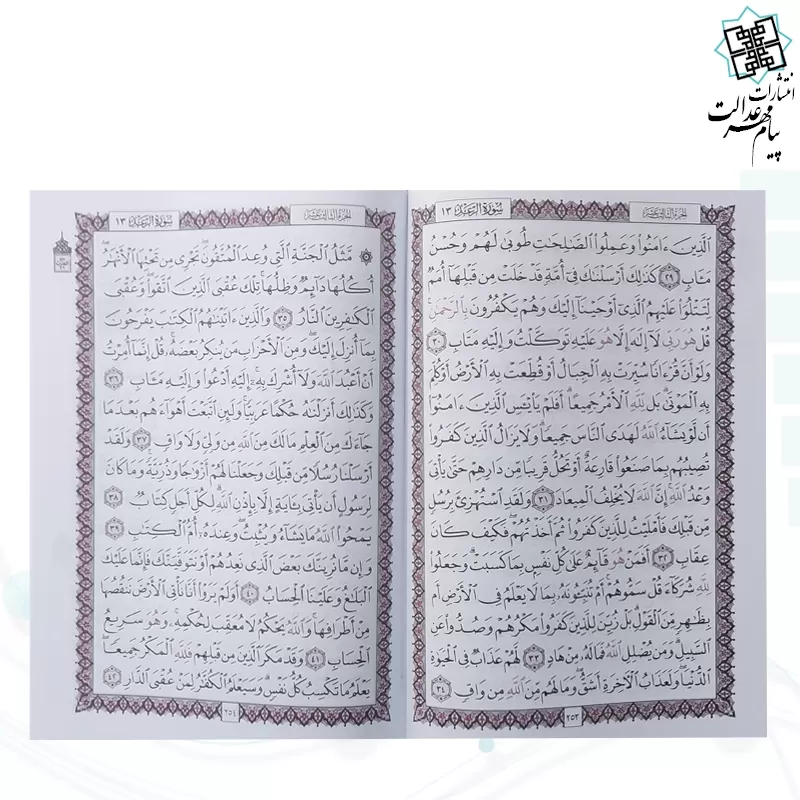 انتشارات
پیام مهر عدالت
الجزء الثالث عشر
سورة الرعد ١٣
الَّذِينَ ءَامَنُوا۟ وَعَمِلُوا۟ الصَّٰلِحَٰتِ طُوبَىٰ لَهُمْ وَحُسْنُ
مَـَٔابٍ ﴿٢٩﴾ كَذَٰلِكَ أَرْسَلْنَٰكَ فِىٓ أُمَّةٍ قَدْ خَلَتْ مِن قَبْلِهَآ أُمَمٌ
لِّتَتْلُوَا۟ عَلَيْهِمُ الَّذِىٓ أَوْحَيْنَآ إِلَيْكَ وَهُمْ يَكْفُرُونَ بِالرَّحْمَٰنِ ۚ
قُلْ هُوَ رَبِّى لَآ إِلَٰهَ إِلَّا هُوَ عَلَيْهِ تَوَكَّلْتُ وَإِلَيْهِ مَتَابِ ﴿٣٠﴾
وَلَوْ أَنَّ قُرْءَانًا سُيِّرَتْ بِهِ الْجِبَالُ أَوْ قُطِّعَتْ بِهِ الْأَرْضُ أَوْ كُلِّمَ
بِهِ الْمَوْتَىٰ ۗ بَل لِّلَّهِ الْأَمْرُ جَمِيعًا ۗ أَفَلَمْ يَا۟يْـَٔسِ الَّذِينَ ءَامَنُوٓا۟
أَن لَّوْ يَشَآءُ اللَّهُ لَهَدَى النَّاسَ جَمِيعًا ۗ وَلَا يَزَالُ الَّذِينَ كَفَرُوا۟
تُصِيبُهُم بِمَا صَنَعُوا۟ قَارِعَةٌ أَوْ تَحُلُّ قَرِيبًا مِّن دَارِهِمْ حَتَّىٰ يَأْتِىَ
وَعْدُ اللَّهِ ۚ إِنَّ اللَّهَ لَا يُخْلِفُ الْمِيعَادَ ﴿٣١﴾ وَلَقَدِ اسْتُهْزِئَ بِرُسُلٍ
مِّن قَبْلِكَ فَأَمْلَيْتُ لِلَّذِينَ كَفَرُوا۟ ثُمَّ أَخَذْتُهُمْ ۖ فَكَيْفَ كَانَ
عِقَابِ ﴿٣٢﴾ أَفَمَنْ هُوَ قَآئِمٌ عَلَىٰ كُلِّ نَفْسٍۭ بِمَا كَسَبَتْ ۗ وَجَعَلُوا۟
لِلَّهِ شُرَكَآءَ قُلْ سَمُّوهُمْ ۚ أَمْ تُنَبِّـُٔونَهُۥ بِمَا لَا يَعْلَمُ فِى الْأَرْضِ أَم
بِظَٰهِرٍ مِّنَ الْقَوْلِ ۗ بَلْ زُيِّنَ لِلَّذِينَ كَفَرُوا۟ مَكْرُهُمْ وَصُدُّوا۟ عَنِ
السَّبِيلِ ۗ وَمَن يُضْلِلِ اللَّهُ فَمَا لَهُۥ مِنْ هَادٍ ﴿٣٣﴾ لَّهُمْ عَذَابٌ فِى الْحَيَوٰةِ
الدُّنْيَا ۖ وَلَعَذَابُ الْءَاخِرَةِ أَشَقُّ ۖ وَمَا لَهُم مِّنَ اللَّهِ مِن وَاقٍ ﴿٣٤﴾
٢٥٣
الجزء الثالث عشر
سورة الرعد ١٣
مَّثَلُ الْجَنَّةِ الَّتِى وُعِدَ الْمُتَّقُونَ ۖ تَجْرِى مِن تَحْتِهَا الْأَنْهَٰرُ ۖ
أُكُلُهَا دَآئِمٌ وَظِلُّهَا ۚ تِلْكَ عُقْبَى الَّذِينَ اتَّقَوا۟ ۖ وَّعُقْبَى
الْكَٰفِرِينَ النَّارُ ﴿٣٥﴾ وَالَّذِينَ ءَاتَيْنَٰهُمُ الْكِتَٰبَ يَفْرَحُونَ
بِمَآ أُنزِلَ إِلَيْكَ ۖ وَمِنَ الْأَحْزَابِ مَن يُنكِرُ بَعْضَهُۥ ۚ قُلْ إِنَّمَآ أُمِرْتُ
أَنْ أَعْبُدَ اللَّهَ وَلَآ أُشْرِكَ بِهِۦٓ ۚ إِلَيْهِ أَدْعُوا۟ وَإِلَيْهِ مَـَٔابِ ﴿٣٦﴾
وَكَذَٰلِكَ أَنزَلْنَٰهُ حُكْمًا عَرَبِيًّا ۚ وَلَئِنِ اتَّبَعْتَ أَهْوَآءَهُم بَعْدَ مَا
جَآءَكَ مِنَ الْعِلْمِ مَا لَكَ مِنَ اللَّهِ مِن وَلِىٍّ وَلَا وَاقٍ ﴿٣٧﴾ وَلَقَدْ
أَرْسَلْنَا رُسُلًا مِّن قَبْلِكَ وَجَعَلْنَا لَهُمْ أَزْوَٰجًا وَذُرِّيَّةً ۚ وَمَا كَانَ
لِرَسُولٍ أَن يَأْتِىَ بِـَٔايَةٍ إِلَّا بِإِذْنِ اللَّهِ ۗ لِكُلِّ أَجَلٍ كِتَابٌ ﴿٣٨﴾
يَمْحُوا۟ اللَّهُ مَا يَشَآءُ وَيُثْبِتُ ۖ وَعِندَهُۥٓ أُمُّ الْكِتَٰبِ ﴿٣٩﴾
وَإِن مَّا نُرِيَنَّكَ بَعْضَ الَّذِى نَعِدُهُمْ أَوْ نَتَوَفَّيَنَّكَ فَإِنَّمَا عَلَيْكَ
الْبَلَٰغُ وَعَلَيْنَا الْحِسَابُ ﴿٤٠﴾ أَوَلَمْ يَرَوْا۟ أَنَّا نَأْتِى الْأَرْضَ نَنقُصُهَا
مِنْ أَطْرَافِهَا ۚ وَاللَّهُ يَحْكُمُ لَا مُعَقِّبَ لِحُكْمِهِۦ ۚ وَهُوَ سَرِيعُ
الْحِسَابِ ﴿٤١﴾ وَقَدْ مَكَرَ الَّذِينَ مِن قَبْلِهِمْ فَلِلَّهِ الْمَكْرُ جَمِيعًا ۖ
يَعْلَمُ مَا تَكْسِبُ كُلُّ نَفْسٍ ۗ وَسَيَعْلَمُ الْكُفَّٰرُ لِمَنْ عُقْبَى الدَّارِ ﴿٤٢﴾
٢٥٤